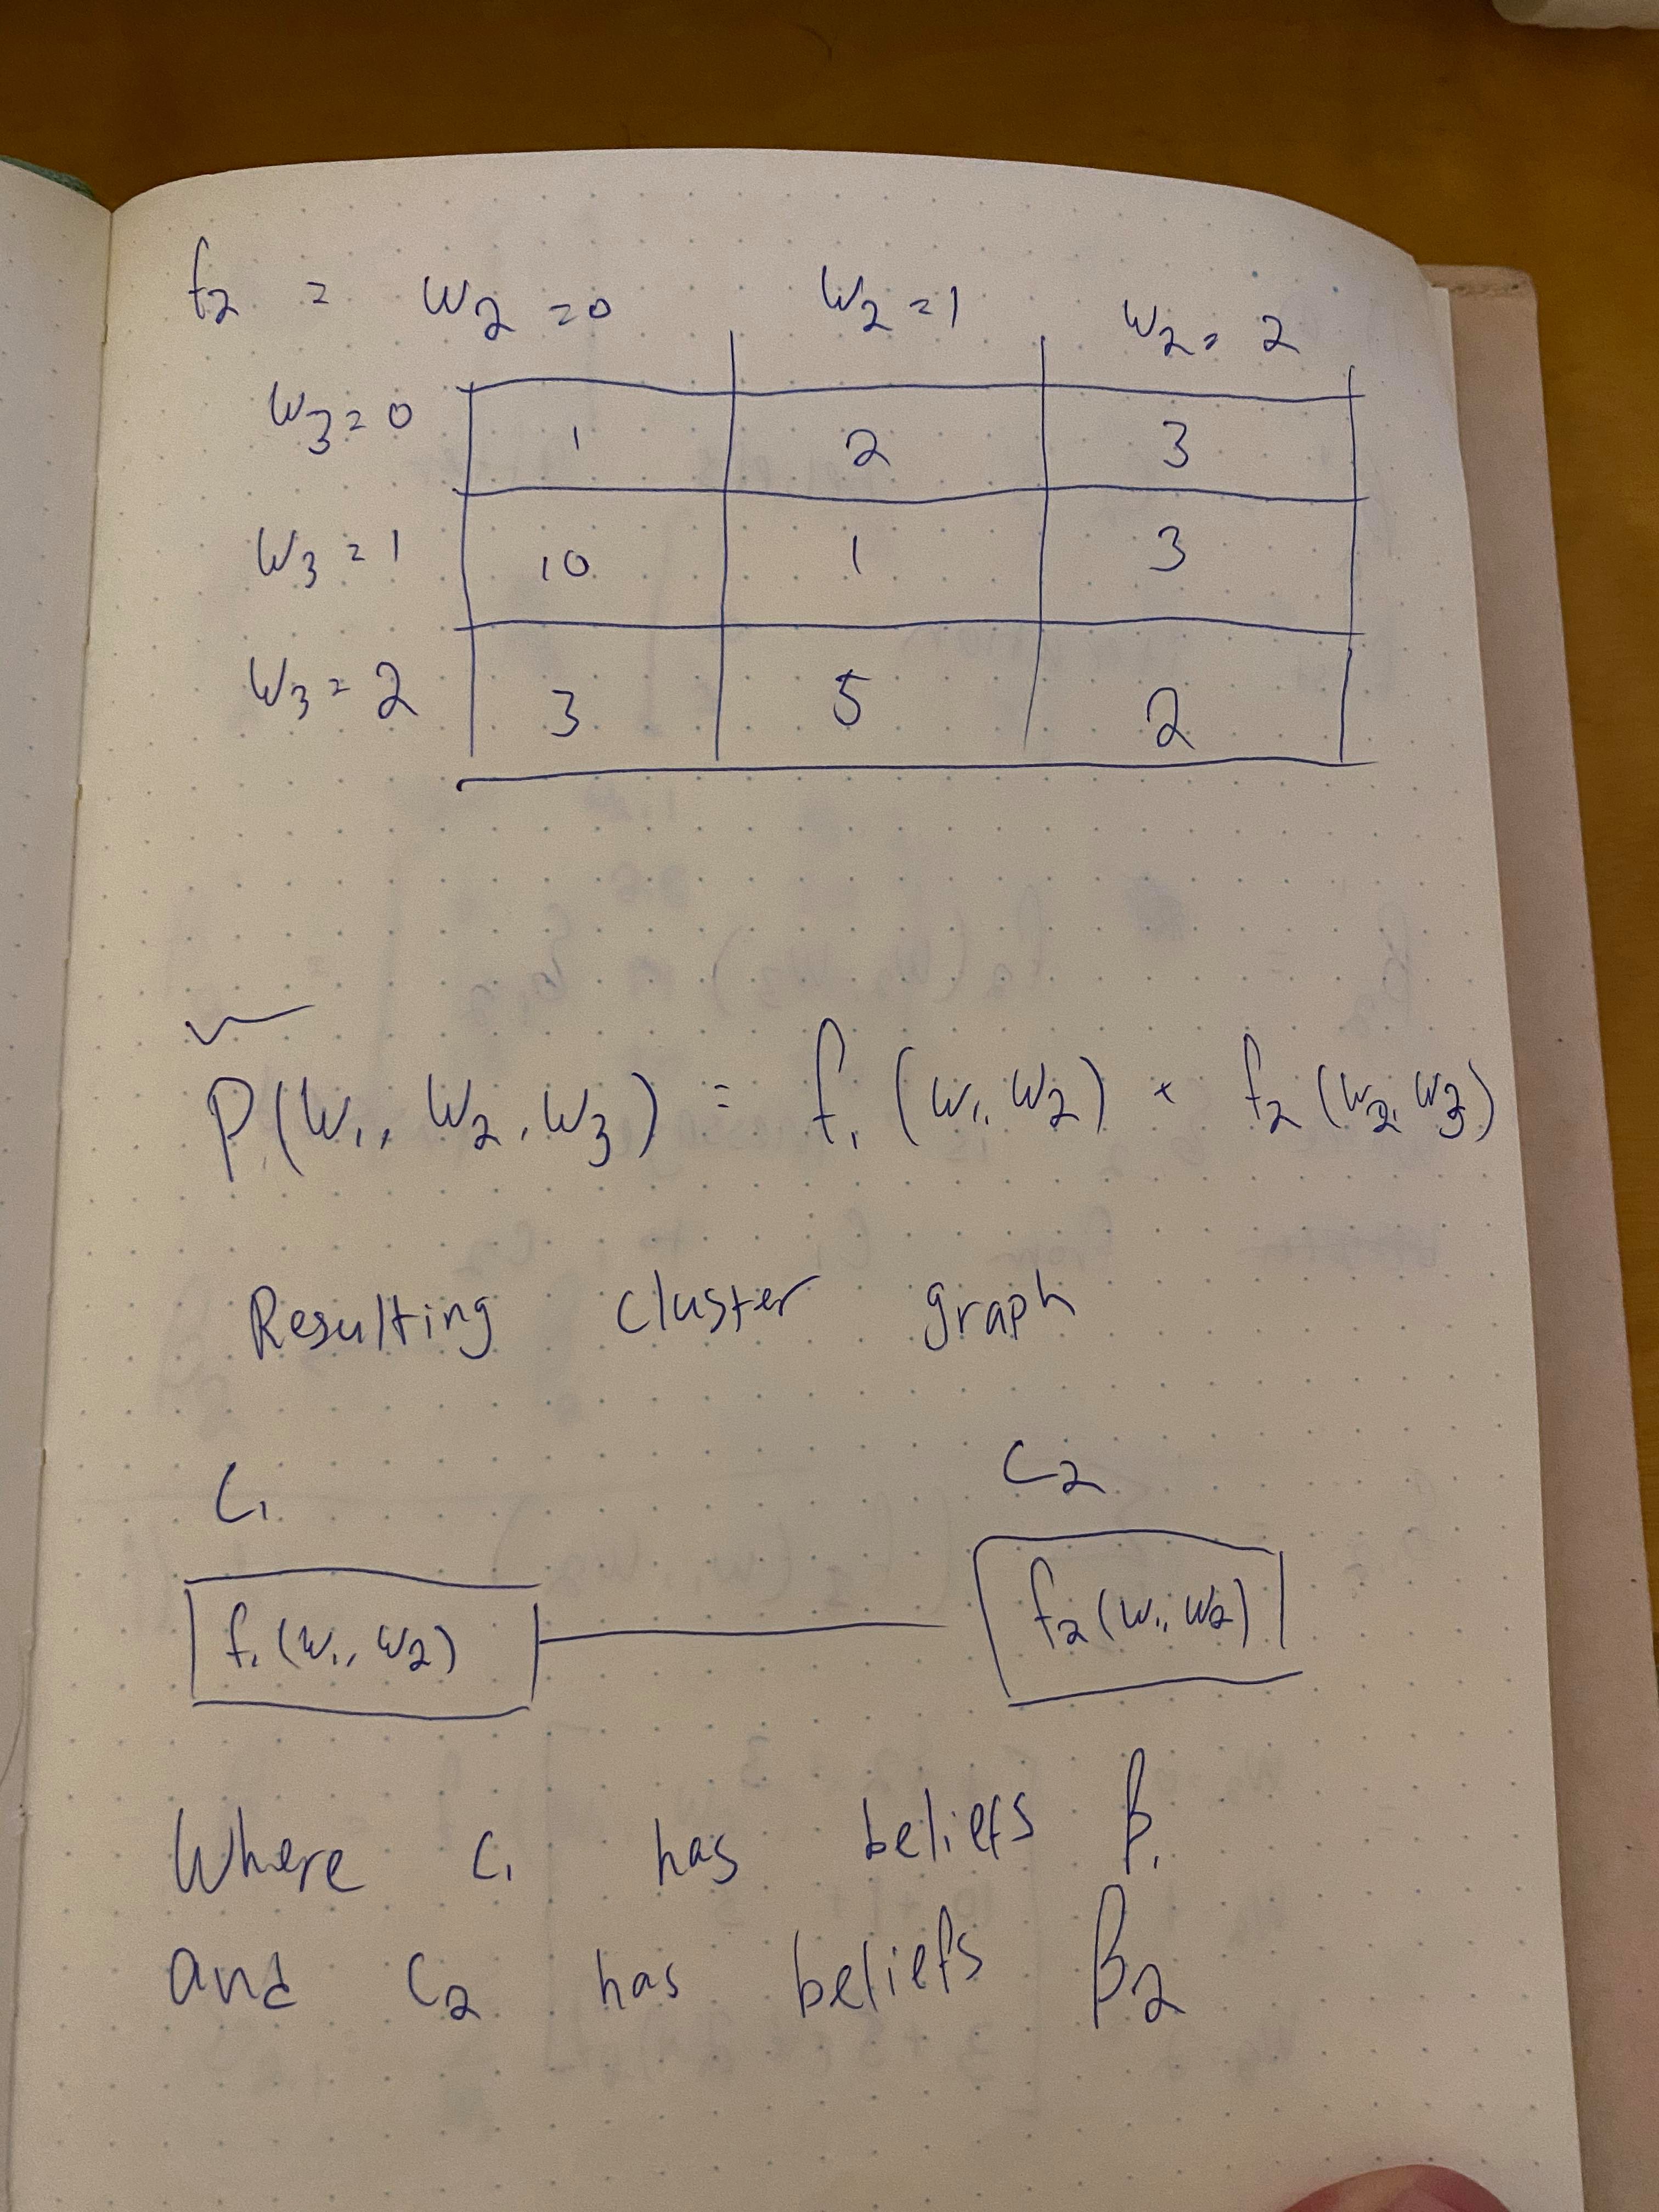 f₂ = w₂ = 0 w₂ = 1 w₂ = 2
w₃ = 0 1 2 3
w₃ = 1 10 1 3
w₃ = 2 3 5 2
P(w₁, w₂, w₃) = f₁ (w₁, w₂) * f₂ (w₂, w₃)
Resulting cluster graph
C₁ C₂
f₁(w₁, w₂) f₂(w₁, w₂)
Where C₁ has beliefs β₁
and C₂ has beliefs β₂